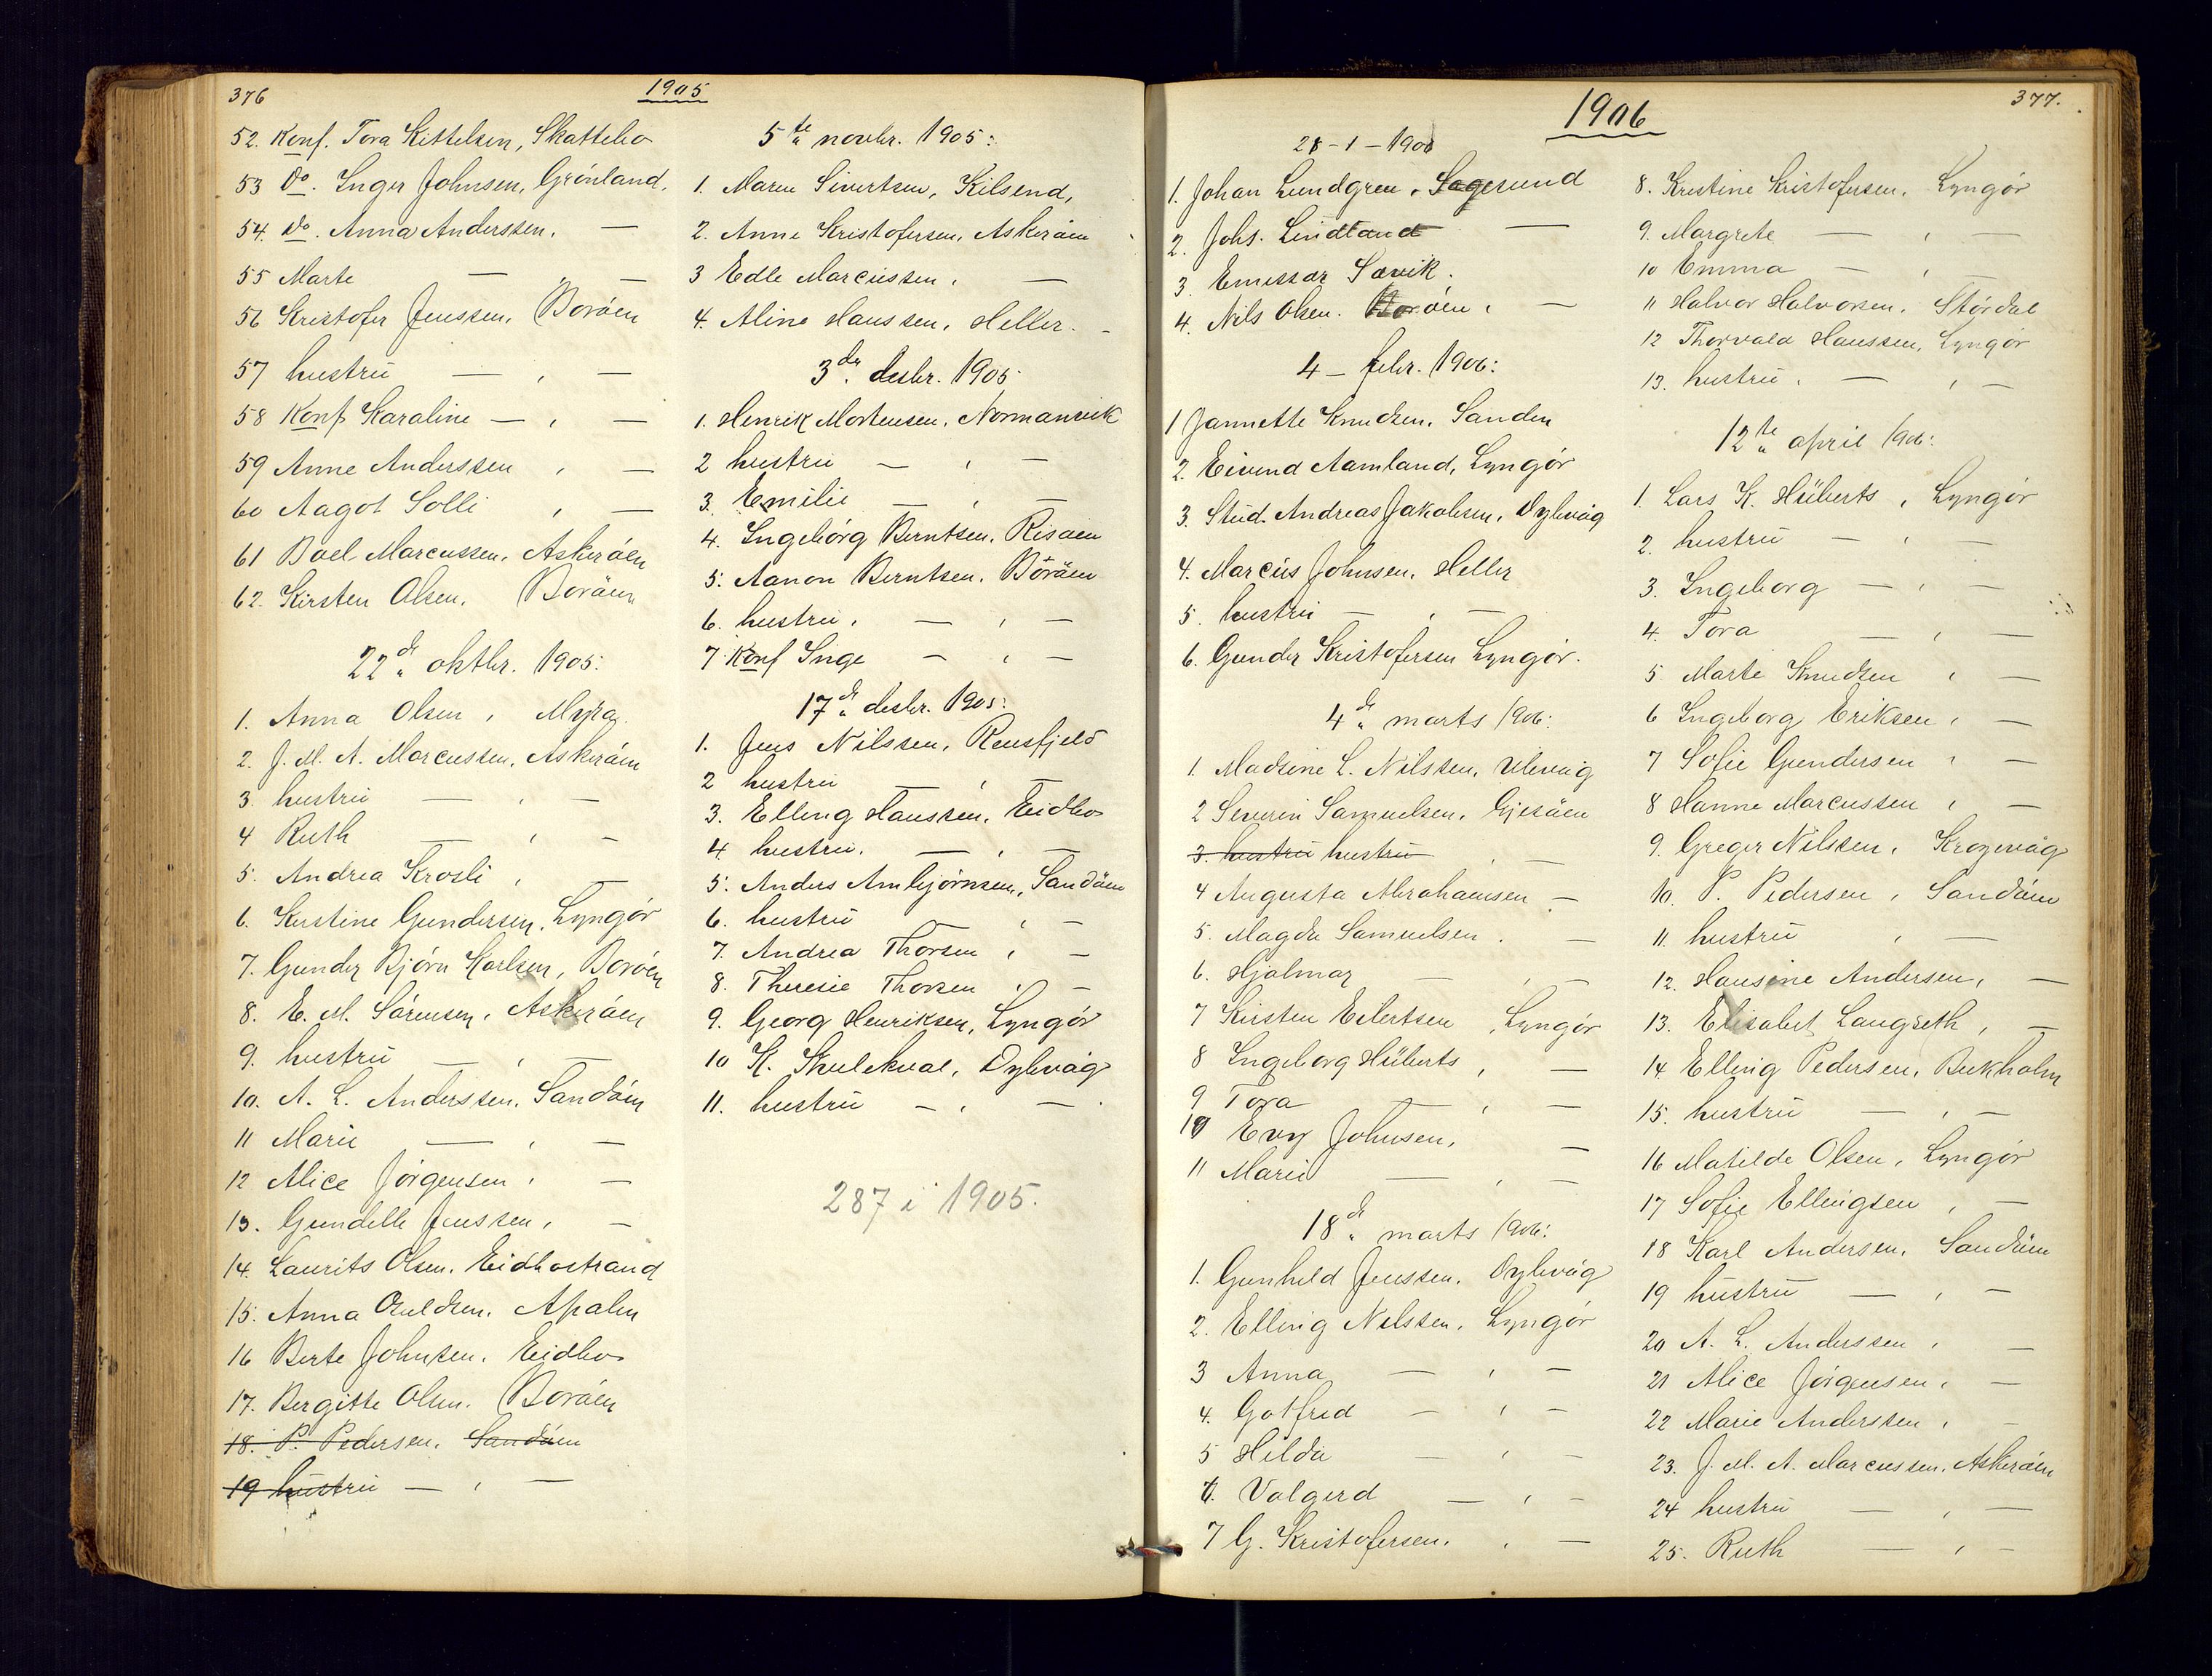 376
1905
52. Konf. Tora Kittelsen, Skattebo
53 Do. Inger Johnsen, Grönland.
54. Do. Anna Anderssen. —
55 Marte — „ —
56 Kristofer Jenssen. Boröen
57 hustru — , —
58 Konf Karaline — , —
59 Anne Anderssen , —
60 Aagot Solli , —
61 Boel Marcussen. Askeröen
62. Kirsten Olsen. Boröen
22de oktbr. 1905:
1. Anna Olsen , Myra.
2. J. M. A. Marcussen. Askeröen
3. hustru — , —
4 Ruth — , —
5. Andrea Krosli , —
6. Kirstine Gundersen. Lyngör
7. Gunder Björn Karlsen, Boröen
8. E. M. Sörensen. Askeröen
9. hustru — , —
10. A. L. Anderssen. Sandöen
11 Marie — , —
12 Alice Jörgensen , —
13. Gundelle Jenssen, —
14. Laurits Olsen. Eidbostrand
15. Anna Ouldsen. Apalen
16 Berte Johnsen. Eidbo
17. Bergitte Olsen. Boröen
18. P. Pedersen. Sandöen
19 hustru — , —
5te novbr. 1905:
1. Maren Sivertsen, Kilsend,
2. Anne Kristofersen. Askeröen
3 Edle Marcussen , —
4. Aline Hanssen, Heller. -
3de desbr. 1905:
1. Henrik Mortensen. Normanvik
2 hustru — , —
3. Emilie — , —
4. Ingeborg Berntsen. Risöen
5. Aanon Berntsen. Boröen
6. hustru , — , —
7. Konf Inge — , —
17de desbr. 1905:
1. Jens Nilssen, Rensfjeld
2 hustru — , —
3. Elling Hanssen. Eidbo
4. hustru. — , —
5. Anders Ambjörnsen, Sandöen
6. hustru — , —
7. Andrea Thorsen , —
8. Theresie Thorsen , —
9. Georg Henriksen, Lyngör
10 K. Skuleknal, Dybvåg
11. hustru — , —
287 i 1905.
377.
1906
21-1-1906
1. Johan Lundgren. Sagesund
2. Johs. Lindtand —
3. Emissær Sævik.
4. Nils Olsen. Boröen , —
4 – febr. 1906:
1 Jannette Knudsen. Sanden
2. Eivind Aamland, Lyngör
3. Stud. Andreas Jakobsen. Dybvåg
4. Marcus Johnsen. Heller
5. hustru — , —
6. Gunder Kristofersen Lyngör.
4de marts 1906:
1. Madsine L. Nilssen. Ulevåg
2 Severin Samuelsen. Gjesöen
3. hustru hustru , —
4 Augusta Abrahamsen —
5. Magda Samuelsen . —
6. Hjalmar — , —
7 Kirsten Eilertsen , Lyngör
8 Ingeborg Hüberts , —
9 Tora — , —
10 Evy Johnsen, —
11 Marie — , —
18de marts 1906:
1. Gunhild Jenssen. Dybvåg
2. Elling Nilssen. Lyngör
3 Anna — , —
4. Gotfred — , —
5 Hilda — , —
6. Valgerd — , —
7 G. Kristofersen. , —
8. Kristine Kristofersen. Lyngör
9. Margrete — , —
10 Emma — , —
11 Halvor Halvorsen. Stördal
12 Thorvald Hanssen, Lyngör
13. hustru , — , —
12te april 1906:
1. Lars K. Hüberts , Lyngör
2. hustru — , —
3. Ingeborg — , —
4. Tora — , —
5 Marte Knudsen , —
6 Ingeborg Eriksen , —
7 Sofie Gundersen , —
8 Hanne Marcussen , —
9. Greger Nilssen. Krogevåg
10. P. Pedersen , Sandöen
11. hustru , —
12. Hansine Andersen, —
13. Elisabet Langseth , —
14. Elling Pedersen. Bukholm
15. hustru — , —
16 Matilde Olsen , Lyngör
17 Sofie Ellingsen , —
18 Karl Andersen. Sandöen
19 hustru — , —
20 A. L. Anderssen , —
21 Alice Jörgensen , —
22 Marie Anderssen , —
23. J. M. A. Marcussen. Askeröen
24 hustru — , —
25. Ruth — , —